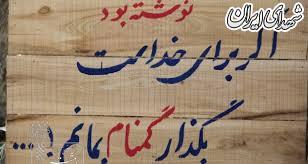 شهدای ایران
نوشته بود
اگر برای خداست
بگذار گمنام بمانم!...